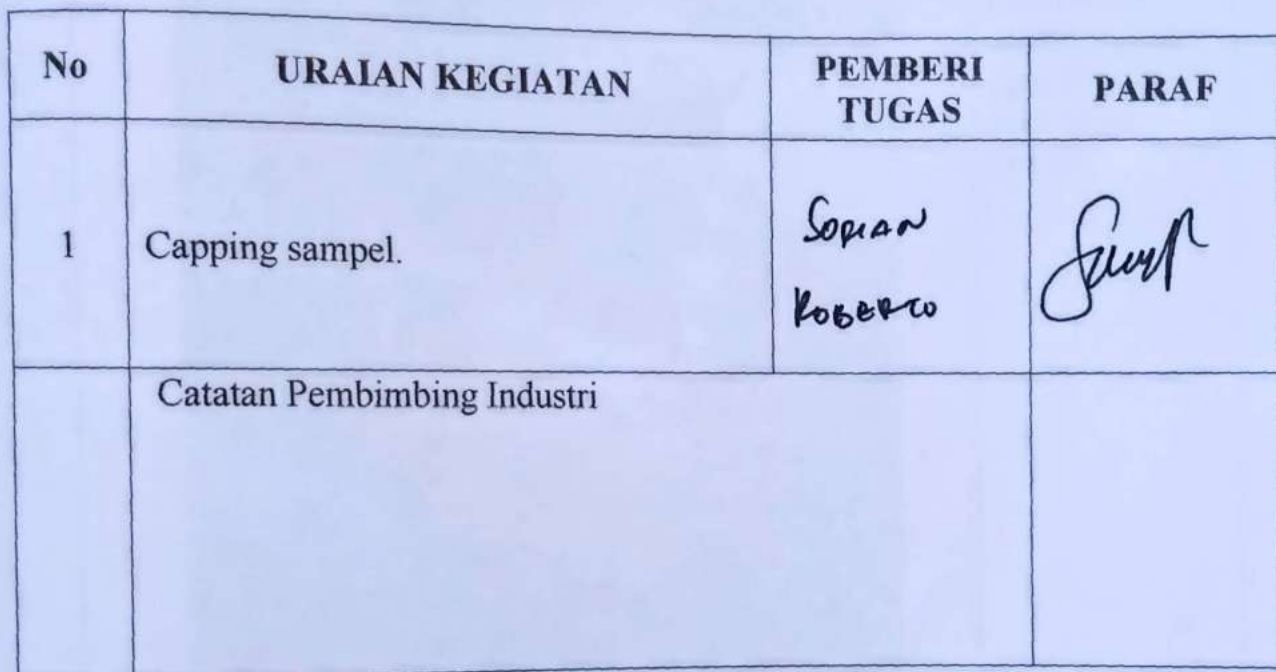 No URAIAN KEGIATAN PEMBERI TUGAS PARAF
1 Capping sampel. SOPIAN
ROBERTO
Catatan Pembimbing Industri